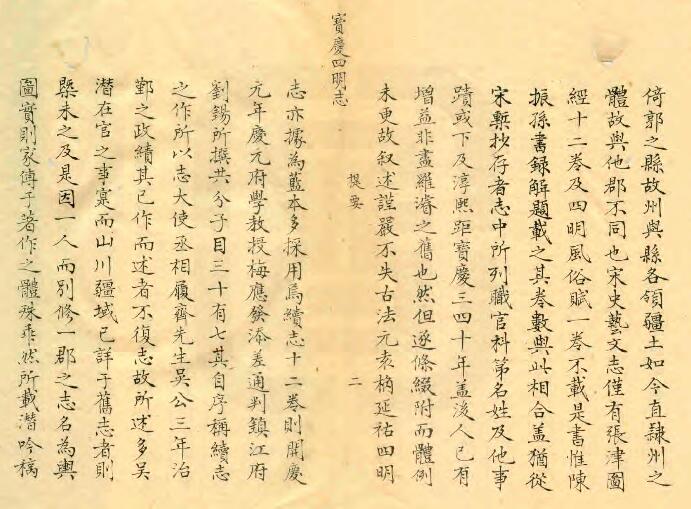 倚郭之縣故州與縣各領疆土如今直隸州之
體故與他郡不同也宋史藝文志僅有張津圖
經十二卷及四明風俗賦一卷不載是書惟陳
振孫書錄解題載之其卷數與此相合蓋猶從
宋槧抄存者志中所列職官科第名姓及他事
蹟或下及淳熙距寶慶三四十年蓋後人已有
增益非盡羅濬之舊也然但逐條綴附而體例
未更故叙述謹嚴不失古法元袁桷延祐四明
寶慶四明志
提要
二
志亦據為藍本多採用焉續志十二卷則開慶
元年慶元府學教授梅應發添差通判鎮江府
劉錫所撰共分子目三十有七其自序稱續志
之作所以志大使丞相履齋先生吳公三年治
鄞之政績其已作而述者不復志故所述多吳
潛在官之事實而山川疆域已詳于舊志者則
槩未之及是因一人而別修一郡之志名為輿
圖實則家傳于著作之體殊乖然所載潛吟稿